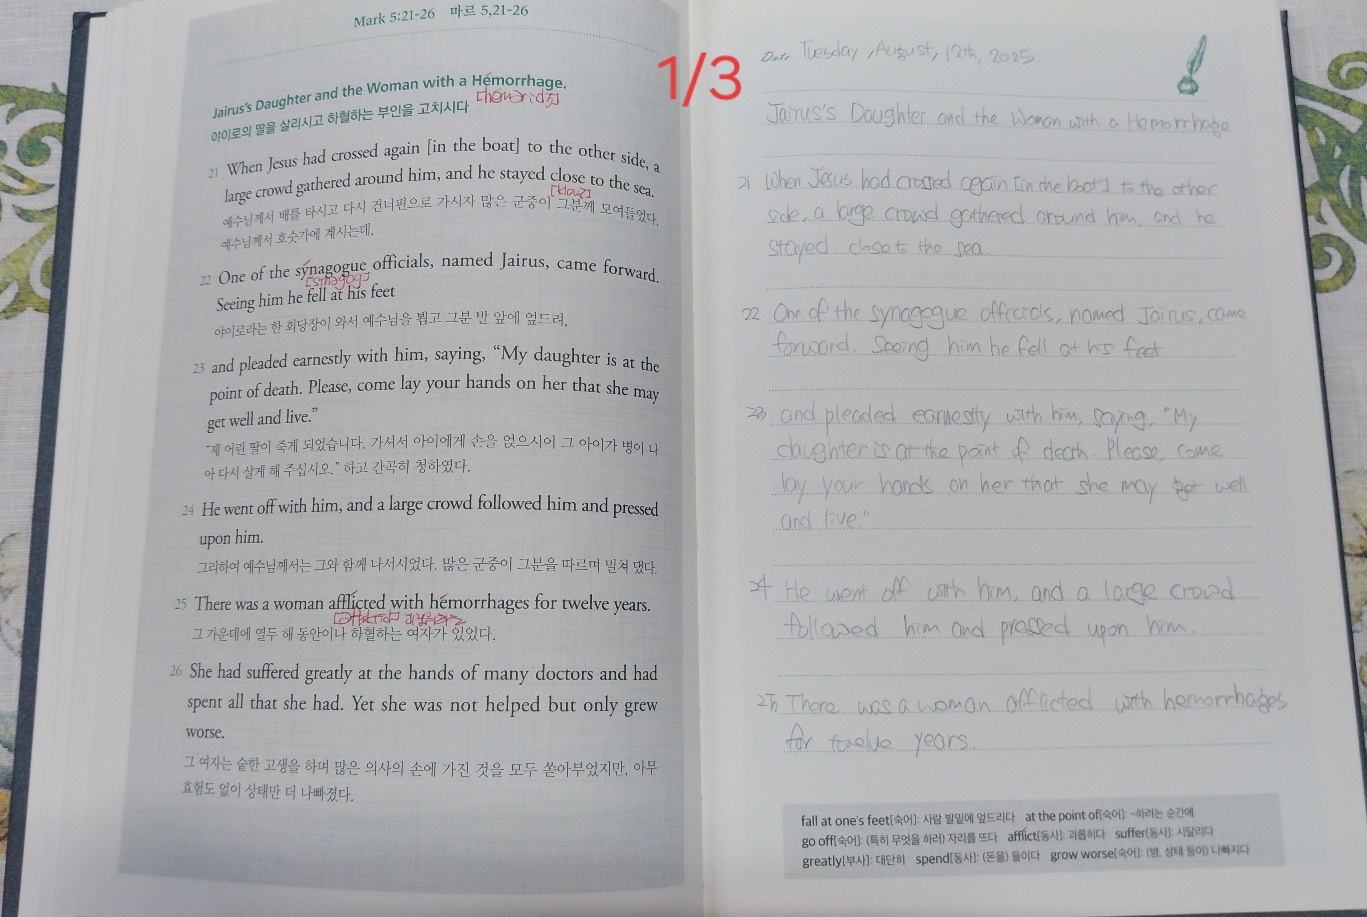 Mark 5:21-26 마르 5,21-26
Jairus's Daughter and the Woman with a Hémorrhage.
야이로의 딸을 살리시고 하혈하는 부인을 고치시다
21 When Jesus had crossed again [in the boat] to the other side, a
large crowd gathered around him, and he stayed close to the sea.
예수님께서 배를 타시고 다시 건너편으로 가시자 많은 군중이 그분께 모여들었다.
예수님께서 호숫가에 계시는데,
22 One of the sýnagogue officials, named Jairus, came forward.
Seeing him he fell at his feet
야이로라는 한 회당장이 와서 예수님을 뵙고 그분 발 앞에 엎드려,
23 and pleaded earnestly with him, saying, “My daughter is at the
point of death. Please, come lay your hands on her that she may
get well and live.”
“제 어린 딸이 죽게 되었습니다. 가셔서 아이에게 손을 얹으시어 그 아이가 병이 나
아 다시 살게 해 주십시오.” 하고 간곡히 청하였다.
24 He went off with him, and a large crowd followed him and pressed
upon him.
그리하여 예수님께서는 그와 함께 나서시었다. 많은 군중이 그분을 따르며 밀쳐 댔다.
25 There was a woman afflícted with hémorrhages for twelve years.
그 가운데에 열두 해 동안이나 하혈하는 여자가 있었다.
26 She had suffered greatly at the hands of many doctors and had
spent all that she had. Yet she was not helped but only grew
worse.
그 여자는 숱한 고생을 하며 많은 의사의 손에 가진 것을 모두 쏟아부었지만, 아무
효험도 없이 상태만 더 나빠졌다.
1/3
Date Tuesday, August, 12th, 2025
Jairus's Daughter and the Woman with a Hemorrhage
21 When Jesus had crossed again [in the boat] to the other
side, a large crowd gathered around him, and he
stayed close to the sea.
22 One of the synagogue officials, named Jairus, came
forward. Seeing him he fell at his feet
23 and pleaded earnestly with him, saying, "My
daughter is at the point of death. Please, come
lay your hands on her that she may get well
and live."
24 He went off with him, and a large crowd
followed him and pressed upon him.
25 There was a woman afflicted with hemorrhages
for twelve years.
fall at one's feet[숙어]: 사람 발밑에 엎드리다 at the point of[숙어]: ~하려는 순간에
go off[숙어]: (특히 무엇을 하러) 자리를 뜨다 afflict[동사]: 괴롭히다 suffer[동사]: 시달리다
greatly[부사]: 대단히 spend[동사]: (돈을) 들이다 grow worse[숙어]: (병, 상태 등이) 나빠지다